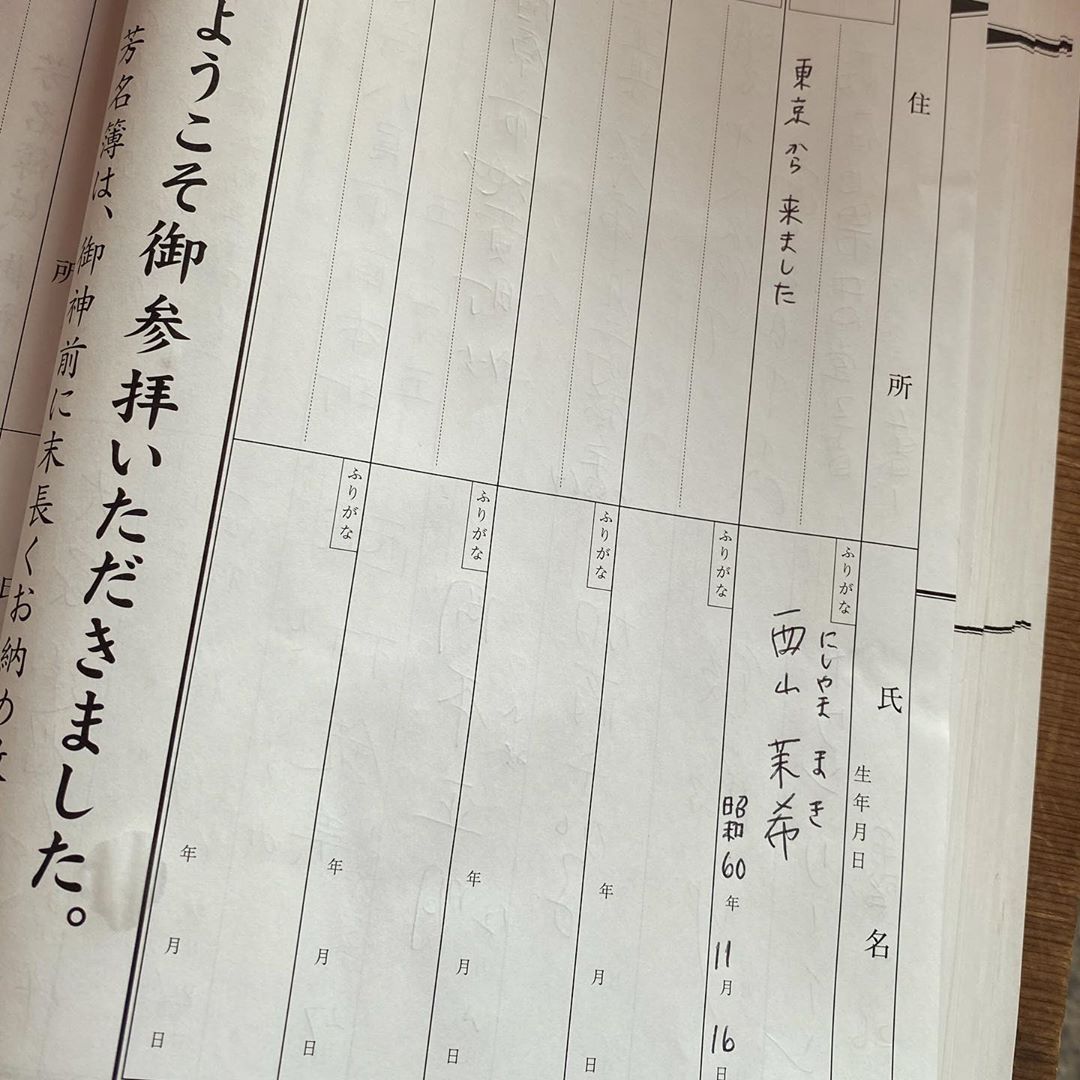 住所
氏名
生年月日
東京から来ました
ふりがな
にしやま まき
西山 茉希
昭和60年11月16日
ふりがな
年 月 日
ふりがな
年 月 日
ふりがな
年 月 日
ふりがな
年 月 日
ようこそ御参拝いただきました。
芳名簿は、御神前に末長くお納め
所
日